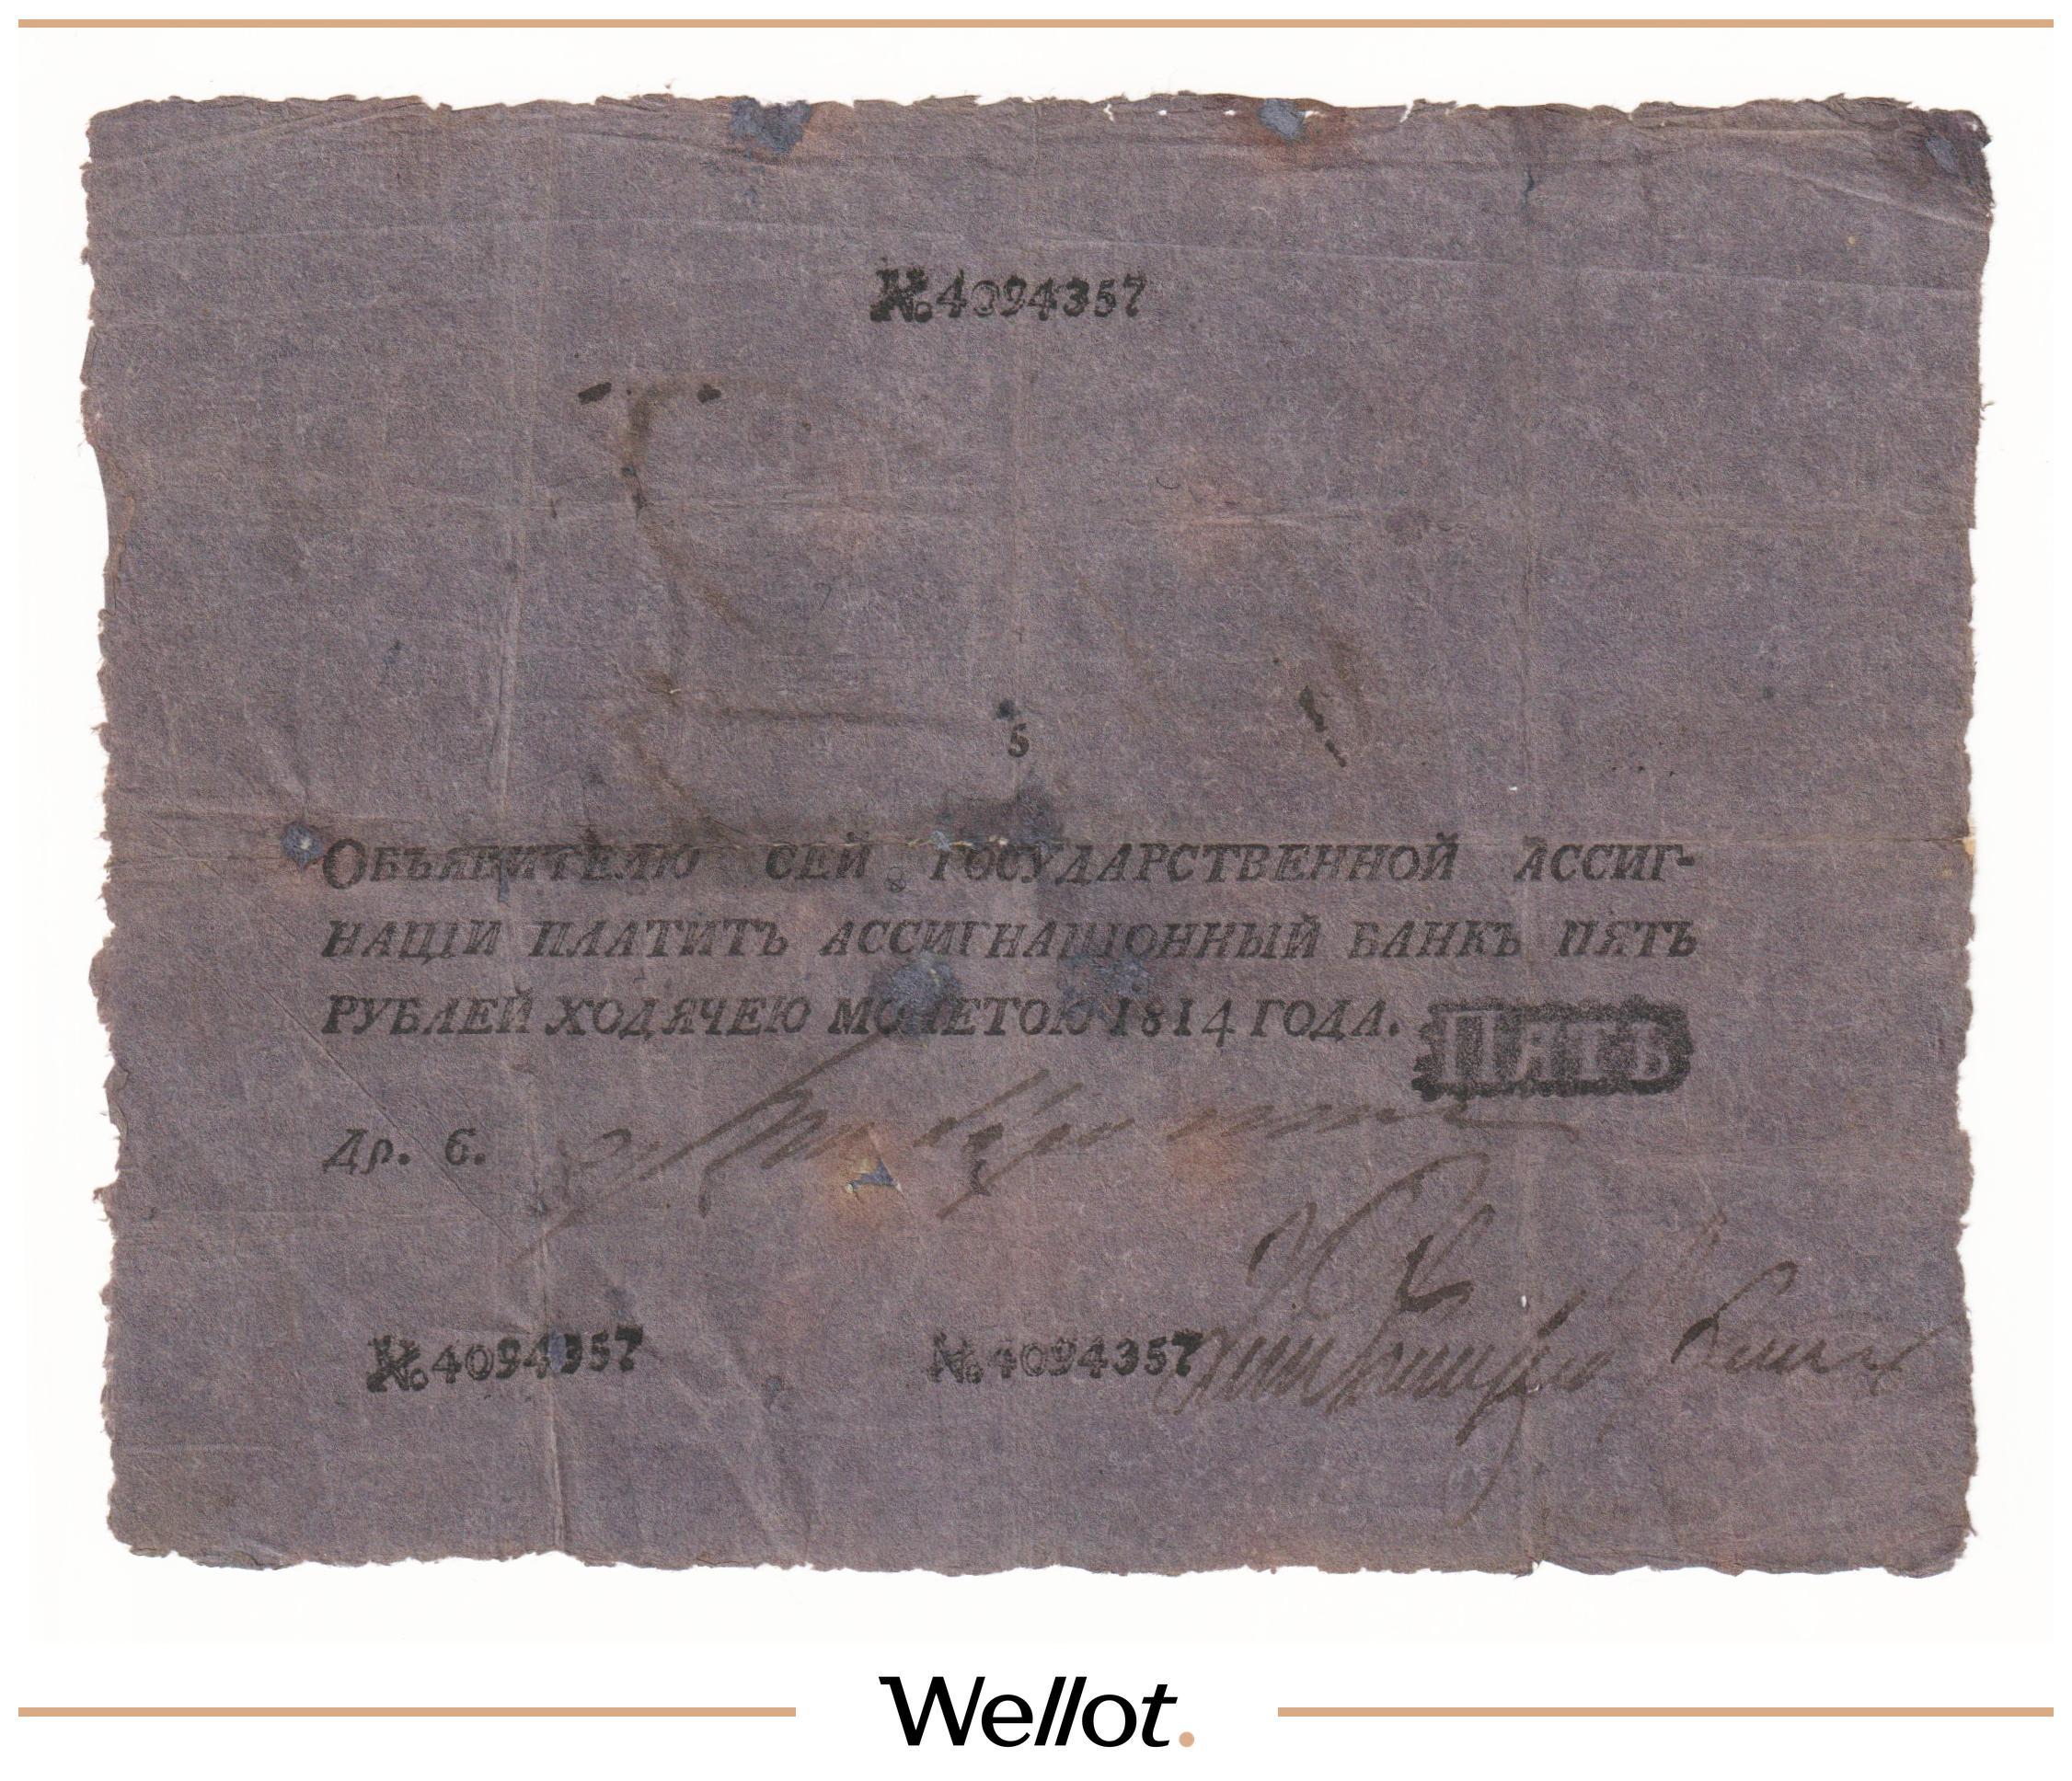 №.4094357
5
Объявителю сей государственной ассиг-
націи платитъ ассигнаціонный банкъ пять
рублей ходячею монетою 1814 года.
Пять
Др. 6.
№.4094357 №.4094357
Wellot.